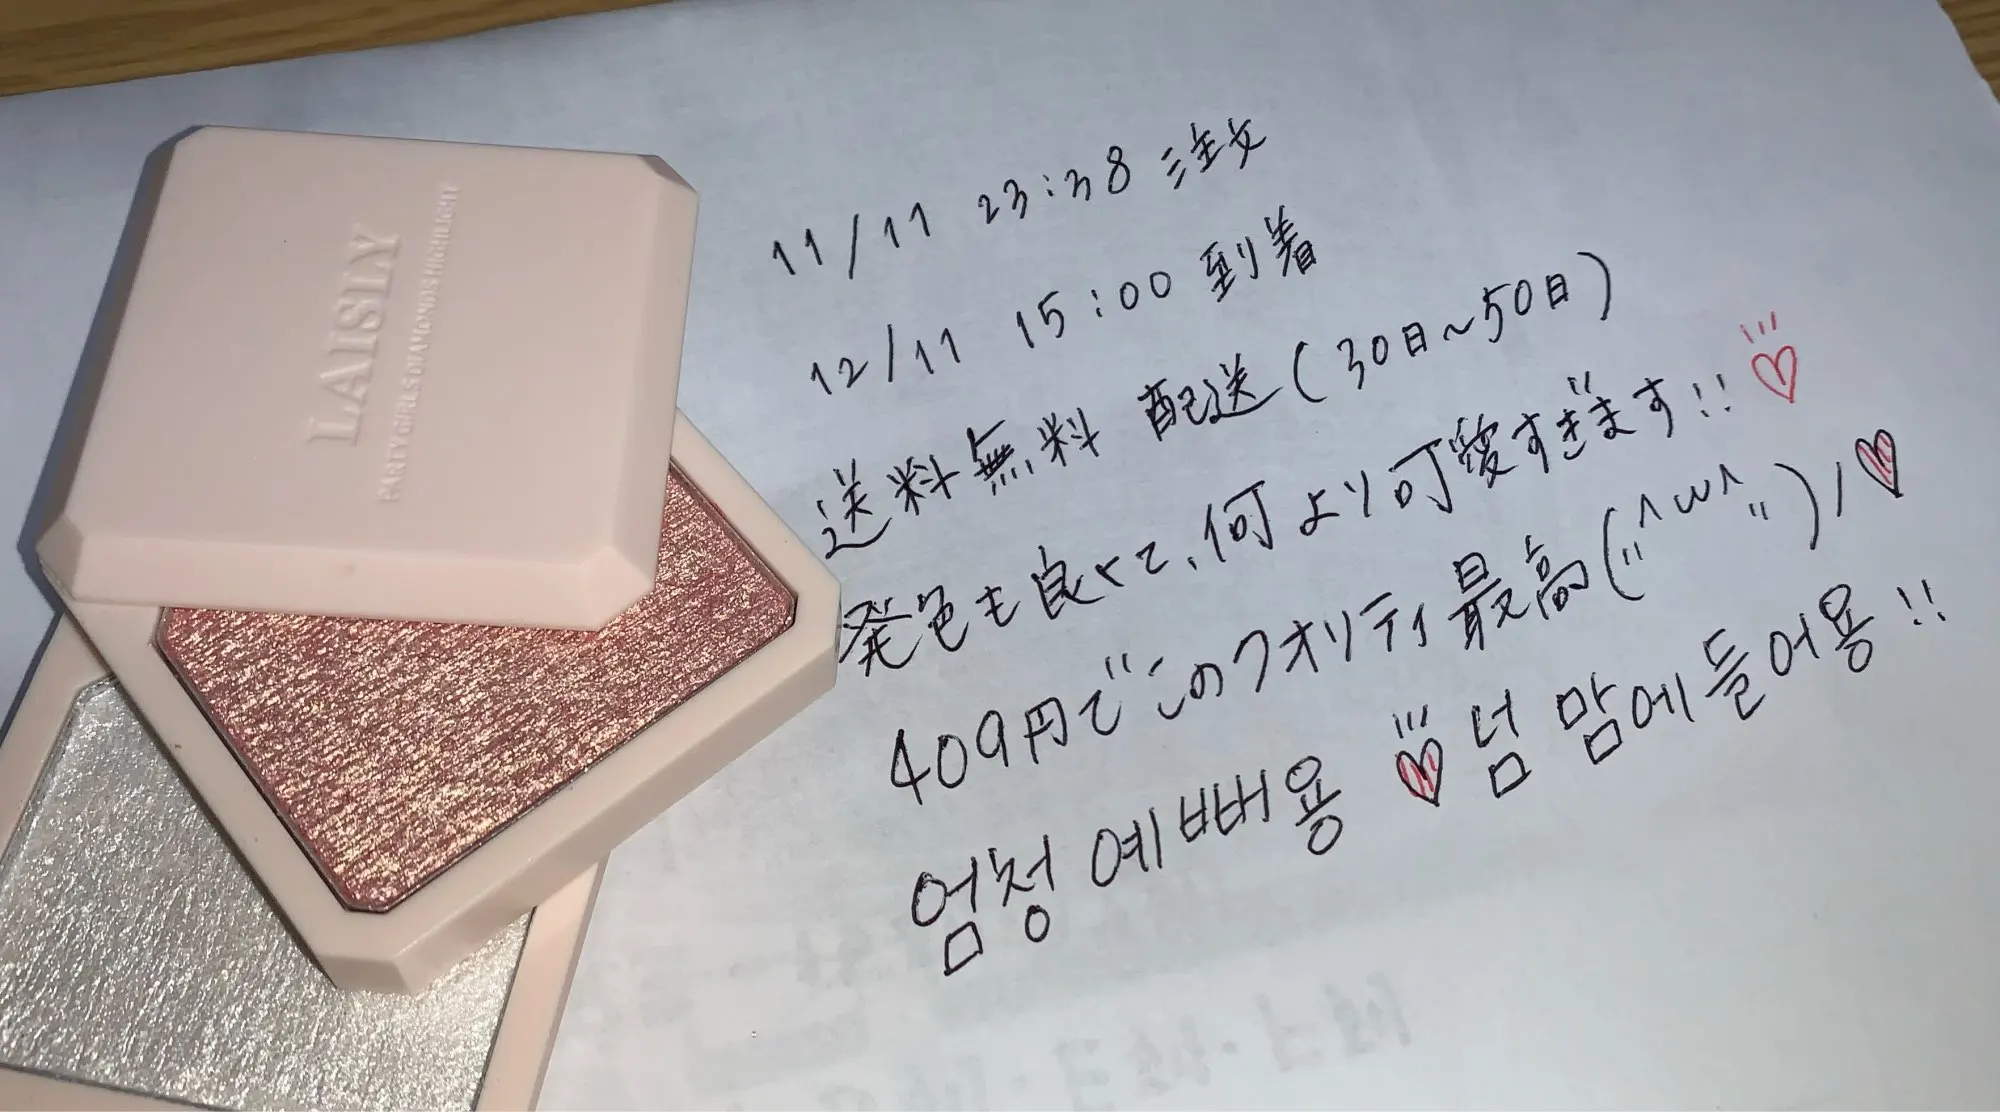 LAISLY
PARTY GIRLS DIAMONDS HIGHLIGHT
11/11 23:38 注文
12/11 15:00 到着
送料無料 配送(30日~50日)
発色も良くて、何より可愛すぎます!! ♡
409円でこのクオリティ最高(〃^ω^〃)ノ♡
엄청 예뻐용 ♡ 넘 맘에들어용!!